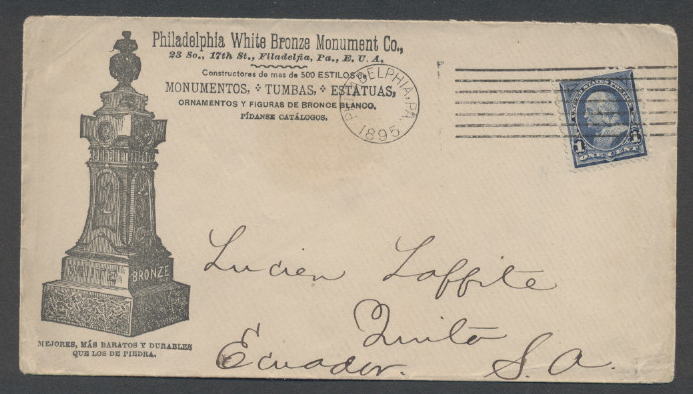 Philadelphia White Bronze Monument Co.,
23 So., 17th St., Filadelfia, Pa., E. U. A.
Constructores de mas de 500 ESTILOS de
MONUMENTOS, TUMBAS, ESTATUAS,
ORNAMENTOS Y FIGURAS DE BRONCE BLANCO,
PÍDANSE CATÁLOGOS.
PHILADELPHIA, PA.
1895
UNITED STATES POSTAGE
1 1
ONE CENT
WHITE BRONZE
MEJORES, MÁS BARATOS Y DURABLES
QUE LOS DE PIEDRA.
Lucien Laffite
Quito
Ecuador. S. A.